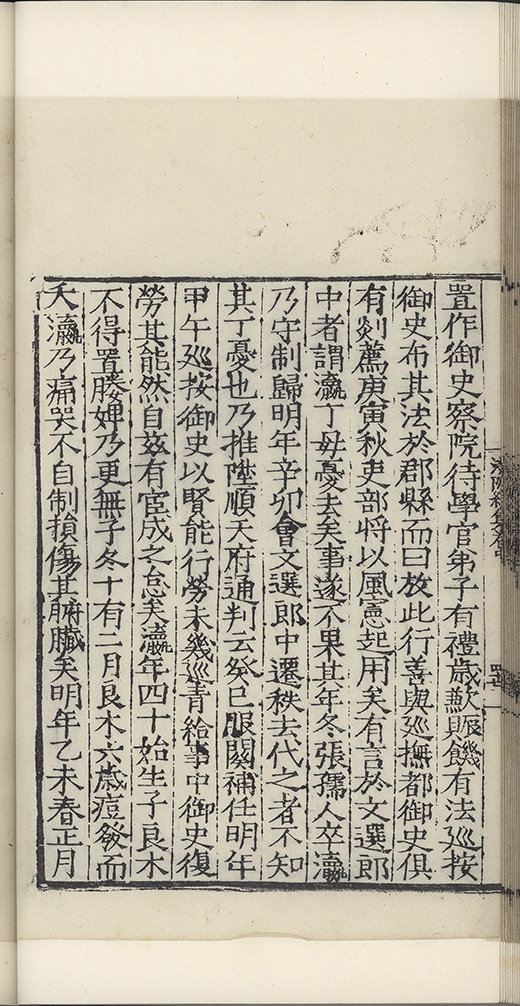 置作御史察院待學官弟子有禮歲歉賑饑有法巡按
御史布其法於郡縣而曰放此行善與巡撫都御史俱
有剡薦庚寅秋吏部將以風憲起用矣有言於文選郎
中者謂瀛丁母憂去矣事遂不果其年冬張孺人卒瀛
乃守制歸明年辛卯會文選郎中遷秩去代之者不知
其丁憂也乃推陞順天府通判云癸巳服闋補任明年
甲午巡按御史以賢能行勞未幾巡青給事中御史復
勞其能然自茲有宦成之怠矣瀛年四十始生子良木
不得置媵婢乃更無子冬十有二月良木六歲痘發而
夭瀛乃痛哭不自制損傷其腑臟矣明年乙未春正月